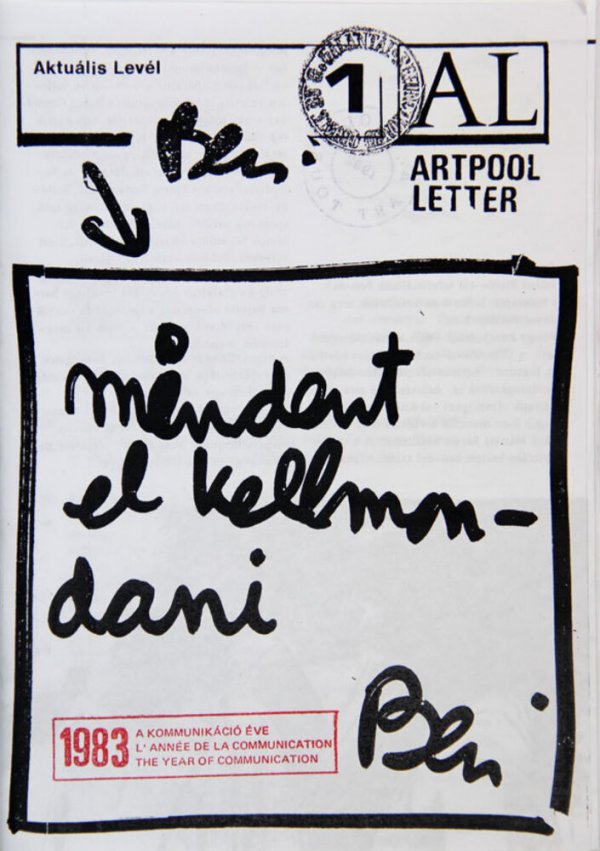 Aktuális Levél
1
AL
Ben.
ARTPOOL
LETTER
mindent
el kellmon-
dani
1983
A KOMMUNIKÁCIÓ ÉVE
L' ANNÉE DE LA COMMUNICATION
THE YEAR OF COMMUNICATION
Ben